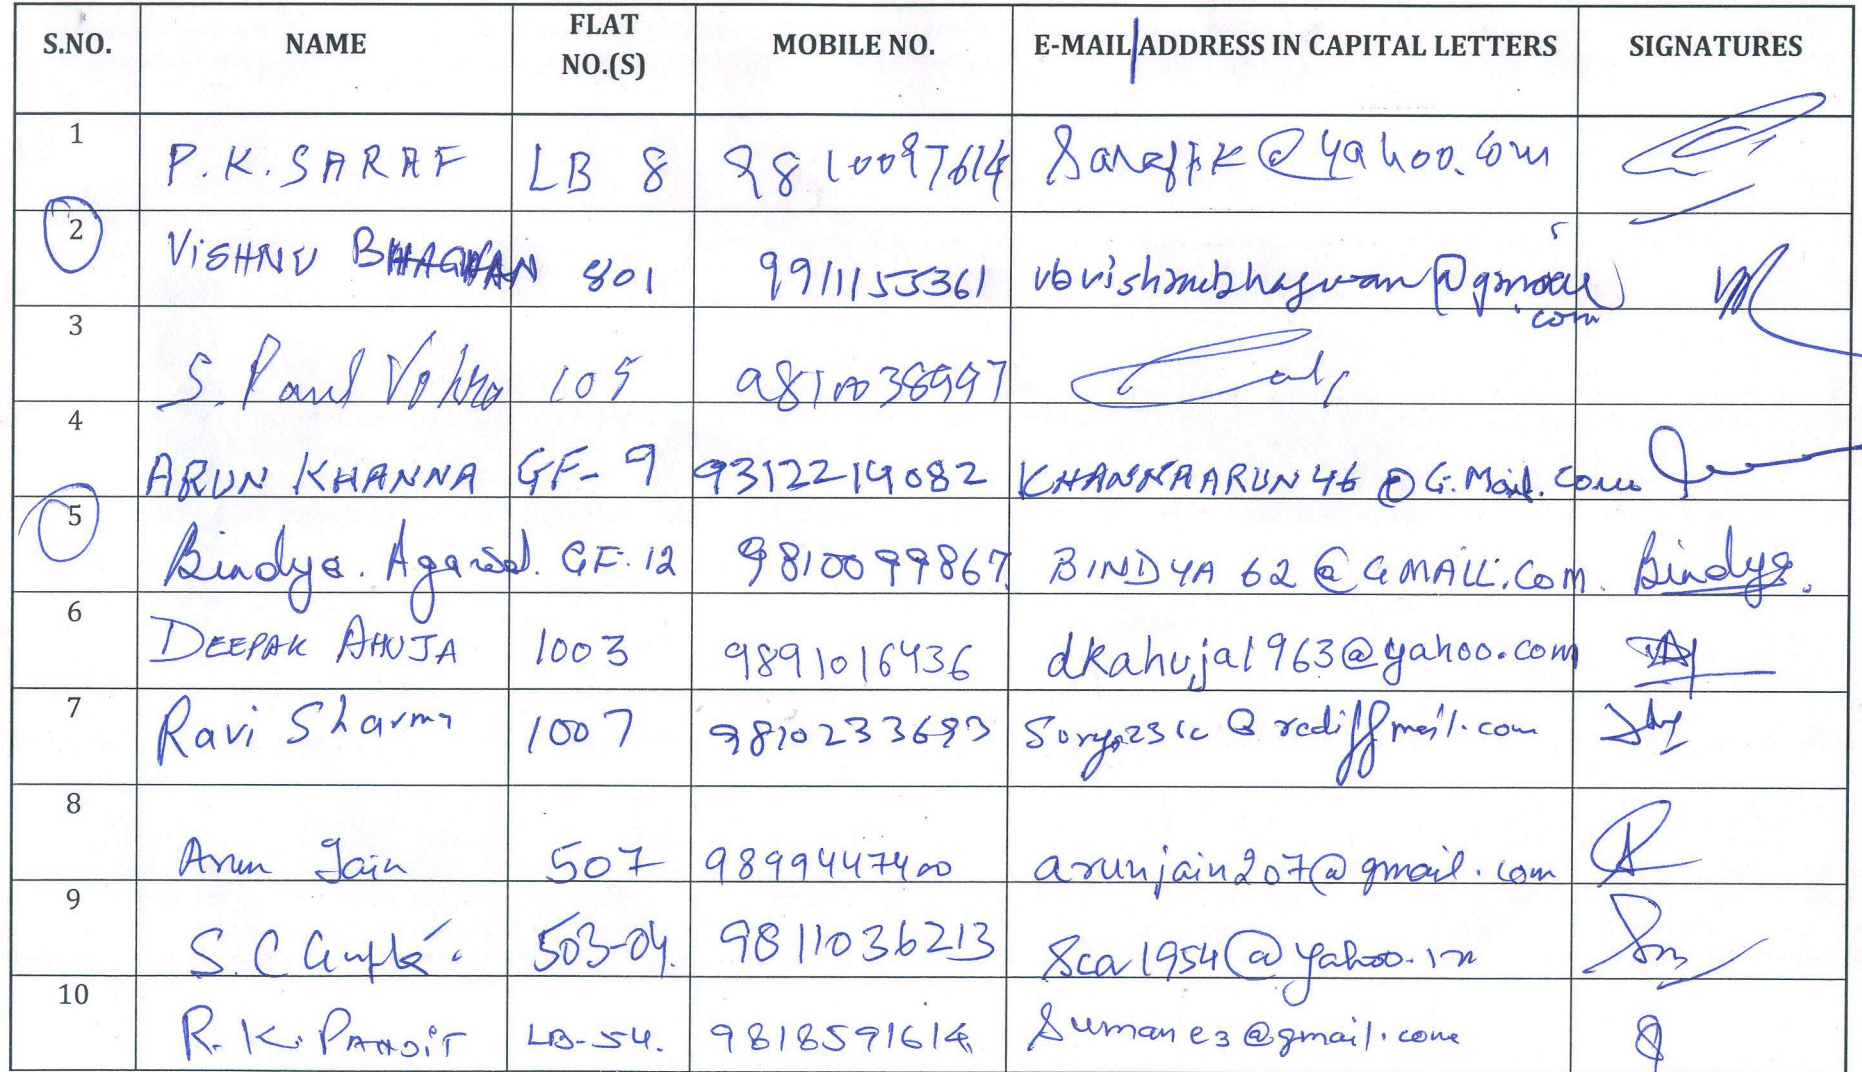 S.NO. NAME FLAT NO.(S) MOBILE NO. E-MAIL ADDRESS IN CAPITAL LETTERS SIGNATURES
1 P.K. SARAF LB 8 9810097614 @yahoo.com
2 VISHNU BHAGWAN 801 9911155361 vbvishnubhagwan@gmail.com
3 S. Paul Vohra 105 9810038997
4 ARUN KHANNA GF-9 9312214082 KHANNAARUN46@G.Mail.Com
5 Bindya. Agarwal. GF-12 9810099867 BINDYA62@GMAIL.COM. Bindya.
6 DEEPAK AHUJA 1003 9891016436 dkahuja1963@yahoo.com
7 Ravi Sharma 1007 9810233693 @rediffmail.com
8 Arun Jain 507 9899447400 arunjain207@gmail.com
9 S.C Gupta. 503-04. 9811036213 @yahoo.in
10 R.K. PANDIT LB-54. 9818591614 Sumane3@gmail.com